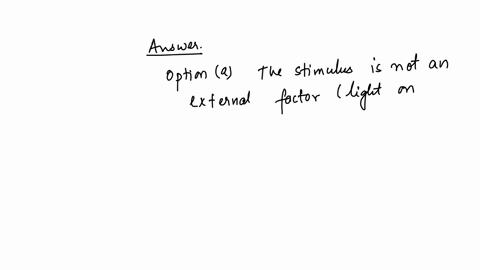 Answer.
Option (a) The stimulus is not an
external factor (light on